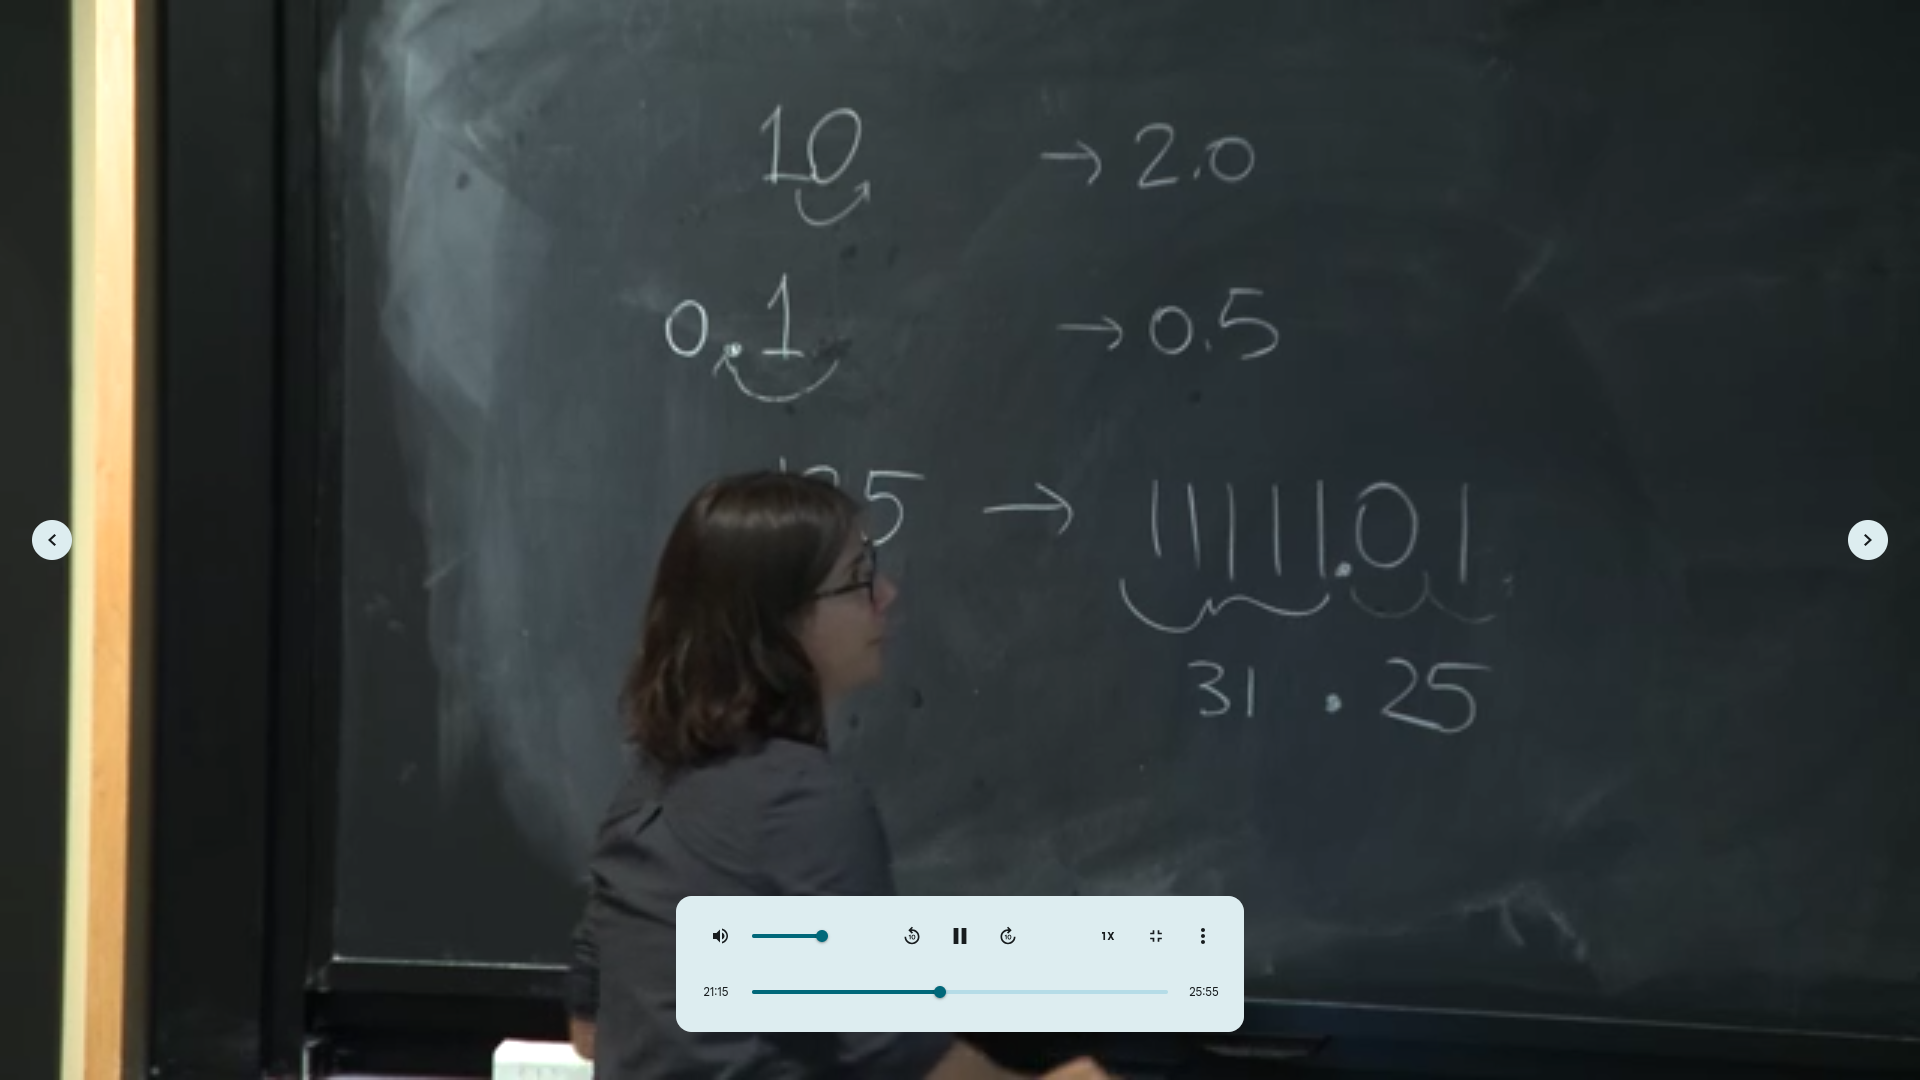 10 → 2.0
0.1 → 0.5
5 → 11111.01
31 . 25
10 10 1X
21:15 25:55